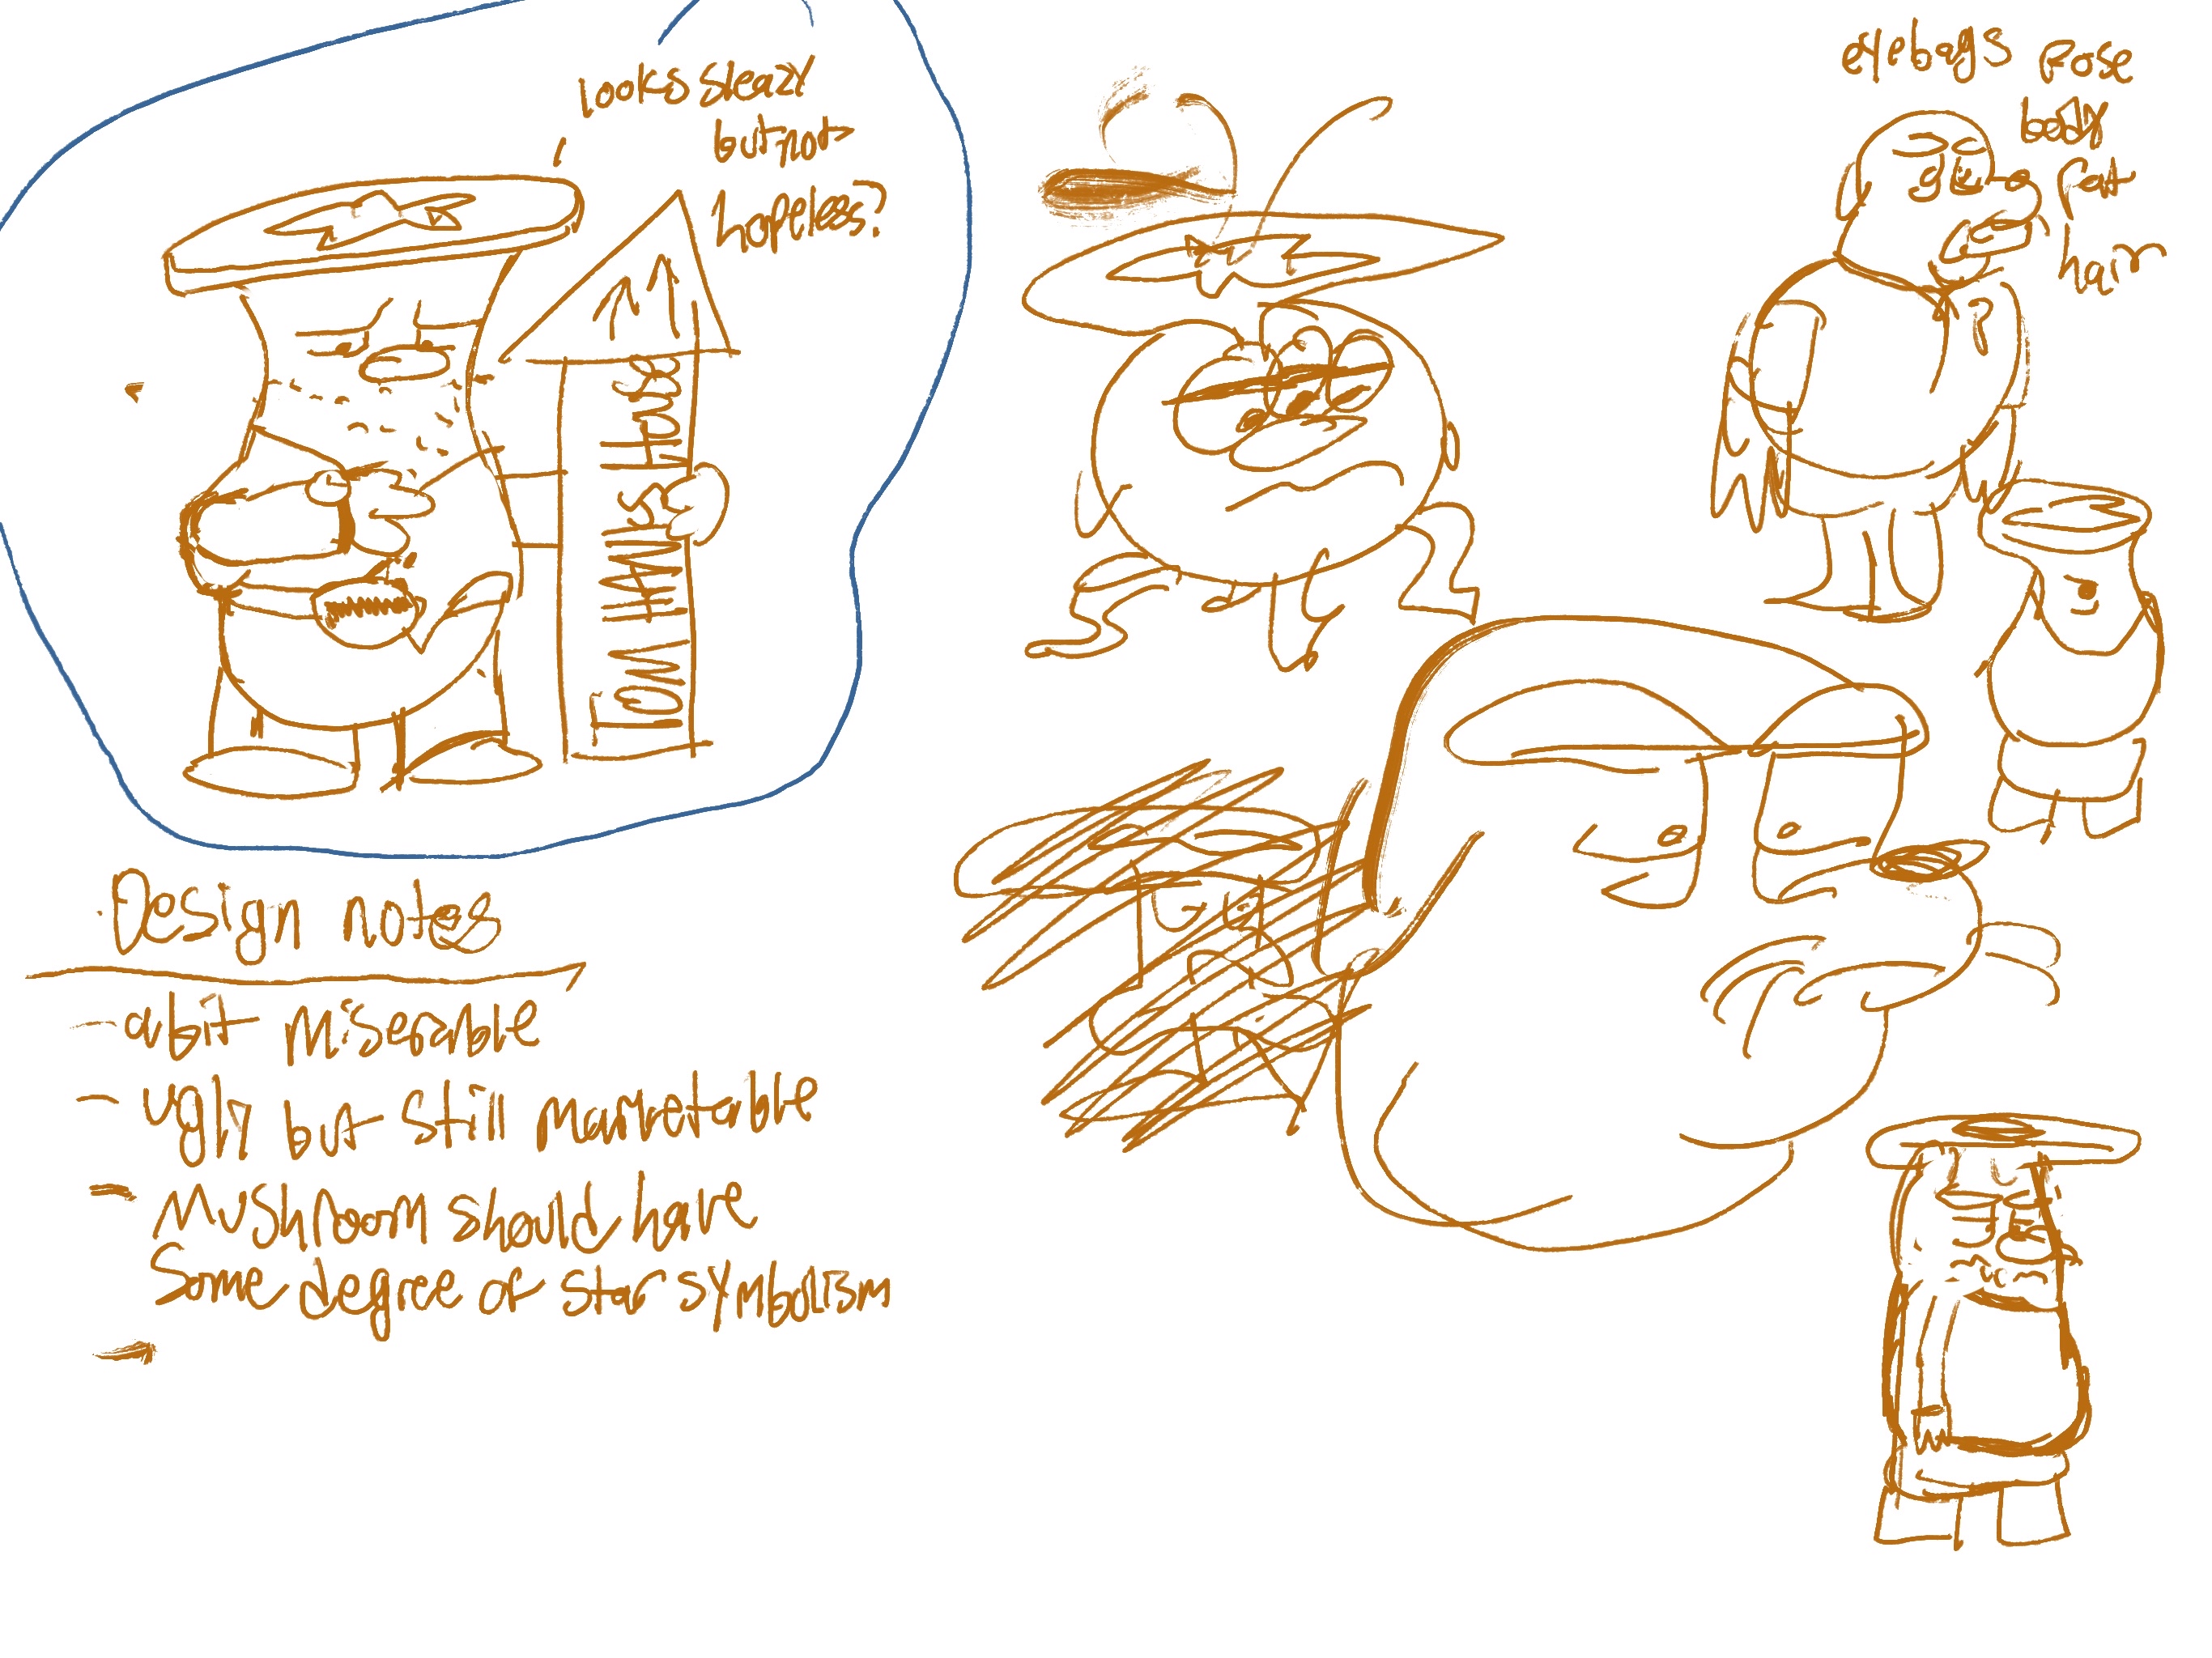 Looks sleazy
but not
hopeless?
TOWHAWNS HUNG
eyebags Rose
body
fat
hair
Design notes
- a bit miserable
- ugly but still marketable
- Mushroom should have
some degree of star symbolism